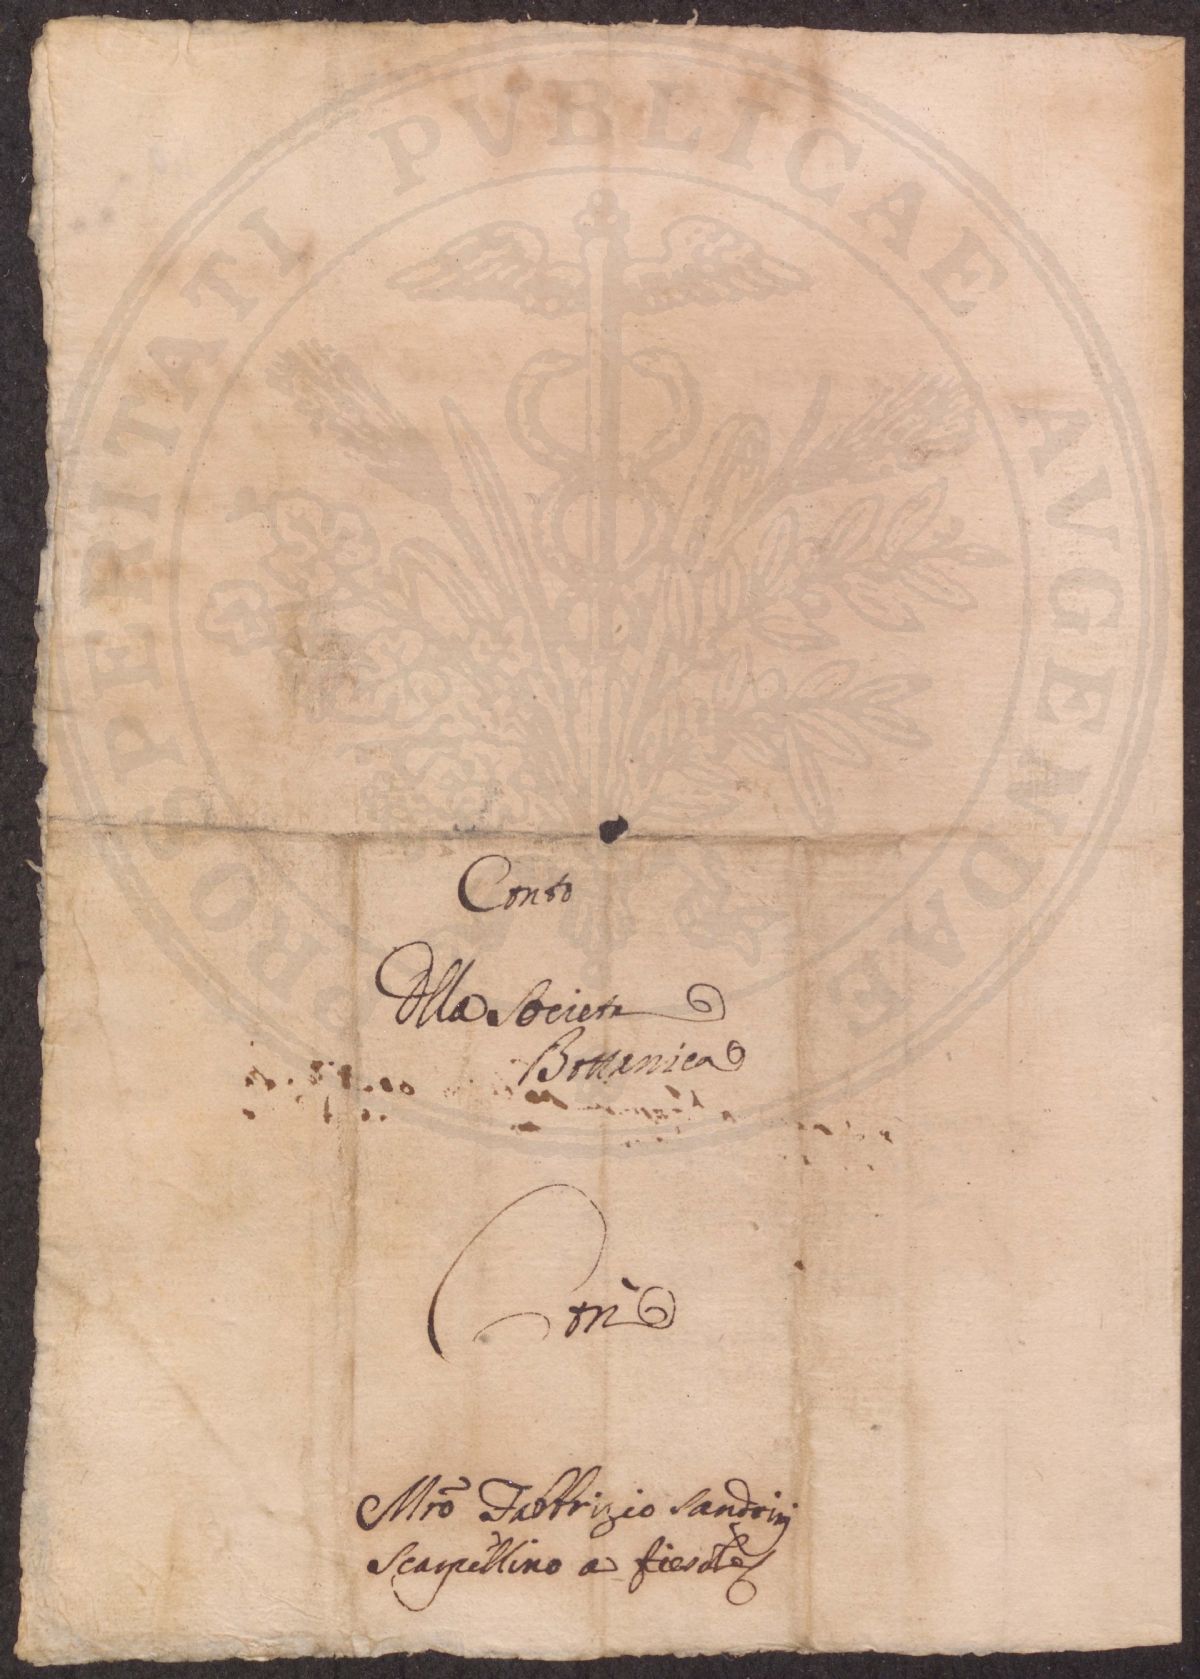 PROSPERITATI PVBLICAE AVGENDAE
Conto
Della Societa
Bottanica
Con
Mrõ Fabbrizio Sandrinj
Scarpellino a fiesole